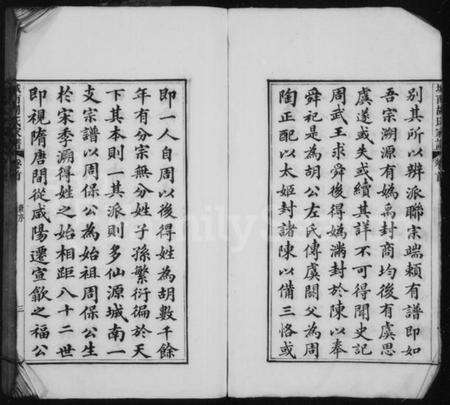 別其所以辨派聯宗端頼有譜即如
吾宗溯源有媯禹封商均後有虞思
虞遂或失或續其詳不可得聞史記
周武王求舜後得媯滿封於陳以奉
舜祀是為胡公左氏傳虞閼父為周
陶正配以太姬封諸陳以備三恪或
即一人自周以後得姓為胡數千餘
年有分宗無分姓子孫繁衍徧於天
下其本則一其派則多仙源城南一
支宗譜以周保公為始祖周保公生
於宋季溯得姓之始相距八十二世
即視隋唐間從咸陽遷宣歙之福公
三